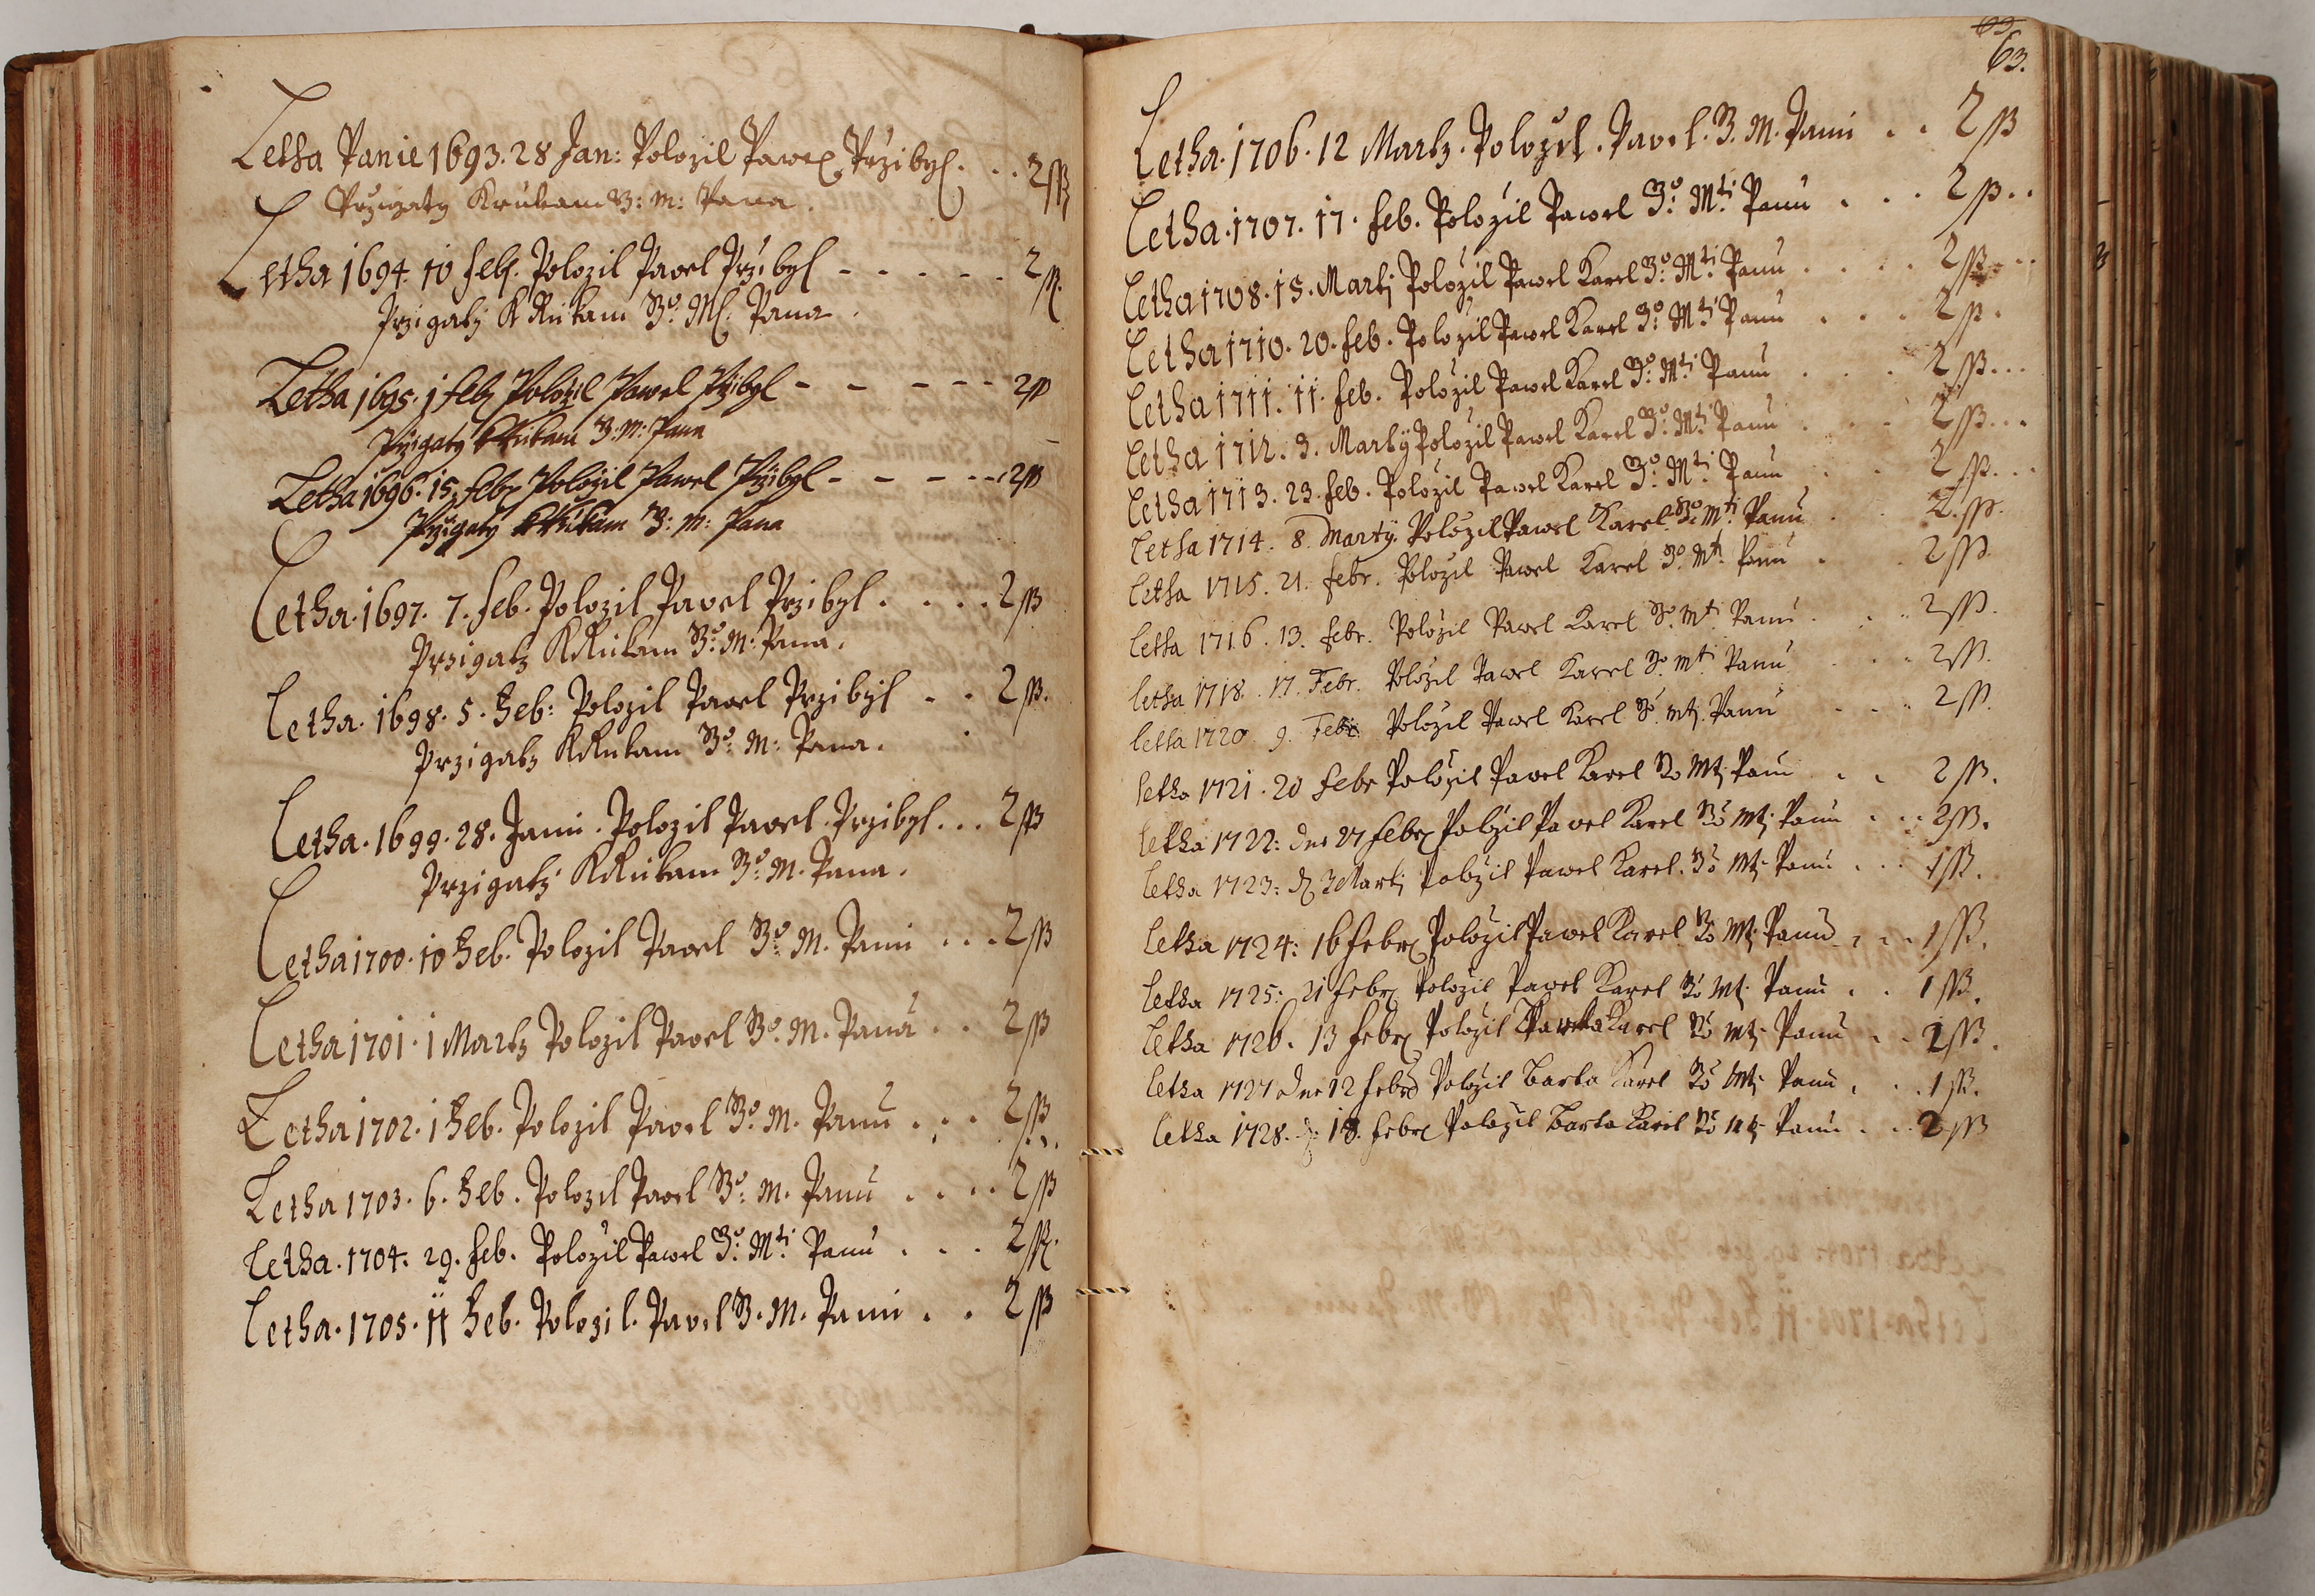 Letha Panie 1693. 28 Jan: Polozil Pawel Przibyl. . . 2 ß
Przigaty Krukam J: M: Pana.
Letha 1694. 10 feb. Polozil Pavel Przibyl - - - - - 2 ß.
Przigaty K Rukam Jº: Ml: Pana.
Letha 1695. j feb Polozil Pawel Przibyl - - - - - 2 ß
Przigaty k Rukam J: M: Pana
Letha 1696. 15 feb Polozil Pawel Przibyl - - - - - 2 ß
Przigaty k Rukam J: M: Pana
Letha. 1697. 7. feb. Polozil Pavel Przibyl . . . . 2 ß
Przigaty K Rukam Jº: M: Pana.
Letha. 1698. 5. Feb: Polozil Pavel Przibyl . . 2 ß.
Przigaty K Rukam Jº: M: Pana.
Letha. 1699. 28. Janu. Polozil Pavel. Przibyl. . . 2 ß
Przigaty K Rukam Jº: M. Pana.
Letha 1700. 10 Feb. Polozil Pavel Jº: M. Panu . . . 2 ß
Letha 1701. 1 Marty Polozil Pavel Jº. M. Panu . . 2 ß
Letha 1702. 1 Feb. Polozil Pavel Jº. M. Panu . . . 2 ß
Letha 1703. 6. Feb. Polozil Pavel Jº: M. Panu . . . . 2 ß
Letha. 1704. 29. feb. Polozil Pawel Jº: Mti Panu . . . 2 ß.
Letha. 1705. 11 Feb. Polozil. Pavel J. M. Panu . . 2 ß
63.
Letha. 1706. 12 Marty. Polozil. Pavel. J. M. Panu . . 2 ß
Letha. 1707. 17. feb. Polozil Pawel Jº: Mti Panu . . . 2 ß . .
Letha 1708. 15. Martj Polozil Pawel Karel Jº: Mti Panu . . . . 2 ß . . .
Letha 1710. 20. feb. Polozil Pawel Karel Jº: Mti Panu . . . 2 ß .
Letha 1711. 11. feb. Polozil Pawel Karel Jº: Mti Panu . . . 2 ß . . .
Letha 1712. 3. Martÿ Polozil Pawel Karel Jº: Mti Panu . . . 2 ß . . .
Letha 1713. 23. feb. Polozil Pawel Karel Jº: Mti Panu . . 2 ß . . .
Letha 1714. 8. Martÿ. Polozil Pawel Karel Jº. Mti Panu . . 2. ß.
Letha 1715. 21. febr. Polozil Pawel Karel Jº. Mti Panu . . 2 ß.
Letha 1716. 13. febr. Polozil Pawel Karel Jº. Mti Panu . . . 2 ß.
letha 1718. 17. Febr. Polozil Pawel Karel Jº. Mti Panu . . . 2 ß.
letha 1720. 9. Febr. Polozil Pawel Karel Jº. Mtj. Panu . . . 2 ß.
letha 1721. 20 febr Polozil Pavel Karel Jo Mtj Panu . . 2 ß.
letha 1722: dne 27 febr Polozil Pavel Karel Jo Mtj. Panu . . . 2 ß.
letha 1723: d 3 Martj Polozil Pawel Karel. Jo Mtj. Panu . . . 1 ß.
letha 1724: 16 febr Polozil Pawel Karel Jo Mtj. Panu . . . 1 ß.
letha 1725: 21 febr Polozil Pawel Karel Jo Mtj. Panu . . 1 ß.
letha 1726. 13 febr Polozil Karel Jo Mtj. Panu . . 2 ß.
letha 1727 dne 12 febr Polozil Barta Karel Jo Mtj. Panu . . . 1 ß.
letha 1728. d. 18. febr Polozil Barta Karel Jo Mtj. Panu . . 2 ß